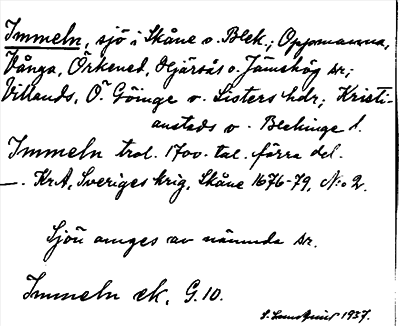 Immeln, sjö i Skåne o. Blek.; Oppmanna,
Vånga, Örkened, Hjärsås o. Jämshög sr;
Villands, Ö. Göinge o. Listers hdr; Kristi-
anstads o. Blekinge l.
Immeln trol. 1700-tal. förra del.
—. KrA, Sveriges krig, Skåne 1676-79, No 2.
Sjön anges av nämnda sr.
Immeln ek. G.10.
1937.